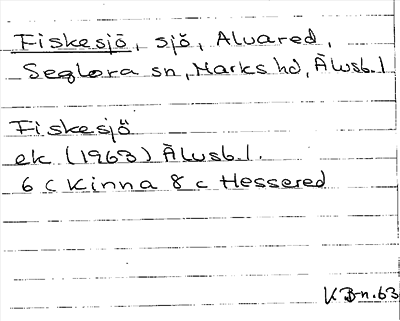 Fiskesjö, sjö, Alvared,
Seglora sn, Marks hd, Älvsb. l
Fiskesjö
ek. (1963) Älvsb. l.
6 c Kinna 8 c Hessered
KB-n. 63